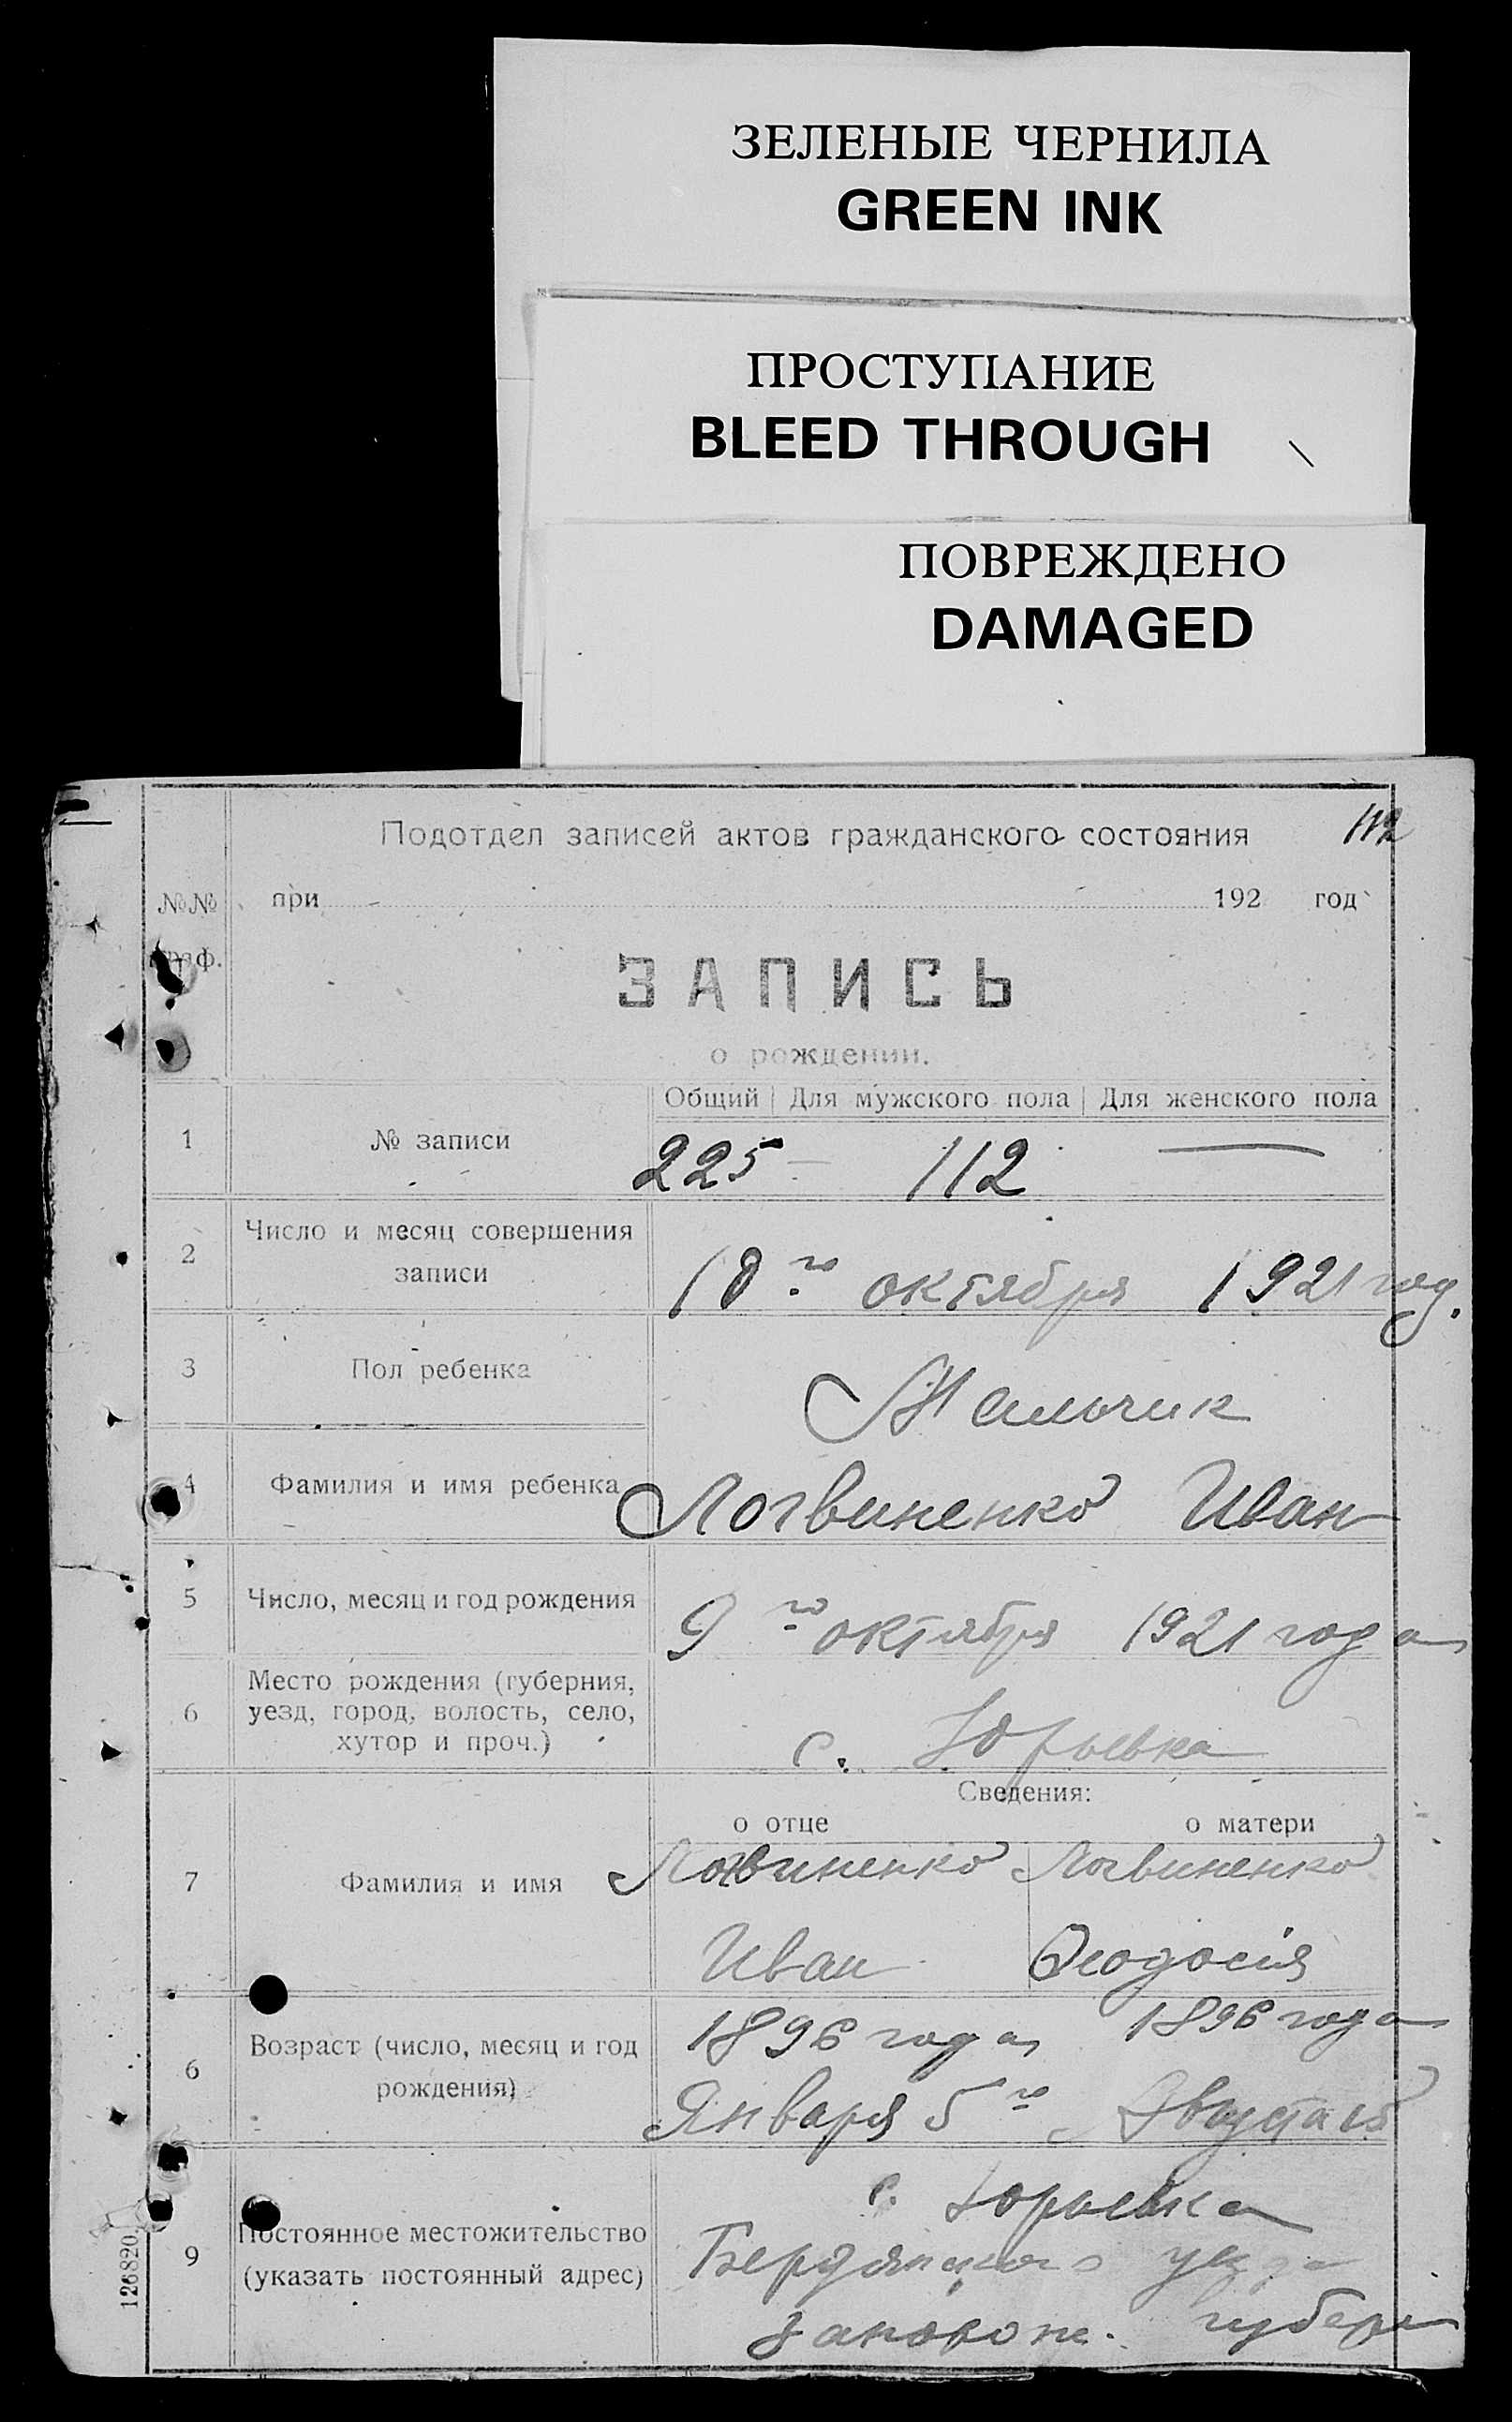 ЗЕЛЕНЫЕ ЧЕРНИЛА
GREEN INK
ПРОСТУПАНИЕ
BLEED THROUGH
ПОВРЕЖДЕНО
DAMAGED
Подотдел записей актов гражданского состояния 112
№№ при 192 год
граф.
ЗАПИСЬ
о рождении.
Общий Для мужского пола Для женского пола
1 № записи 225 — 112 —
2 Число и месяц совершения
записи 10 го октября 1921 год.
3 Пол ребенка Мальчик
4 Фамилия и имя ребенка Логвиненко Иван
5 Число, месяц и год рождения 9 го октября 1921 года
6 Место рождения (губерния,
уезд, город, волость, село,
хутор и проч.) с. Юрьевка
Сведения:
о отце о матери
7 Фамилия и имя Логвиненко Логвиненко
Иван Феодосія
6 Возраст (число, месяц и год
рождения) 1896 года 1896 года
Января 5 го Августа 15
9 Постоянное местожительство
(указать постоянный адрес) с. Юрьевка
Бердянского уезда
Запорож. губерн
126820.